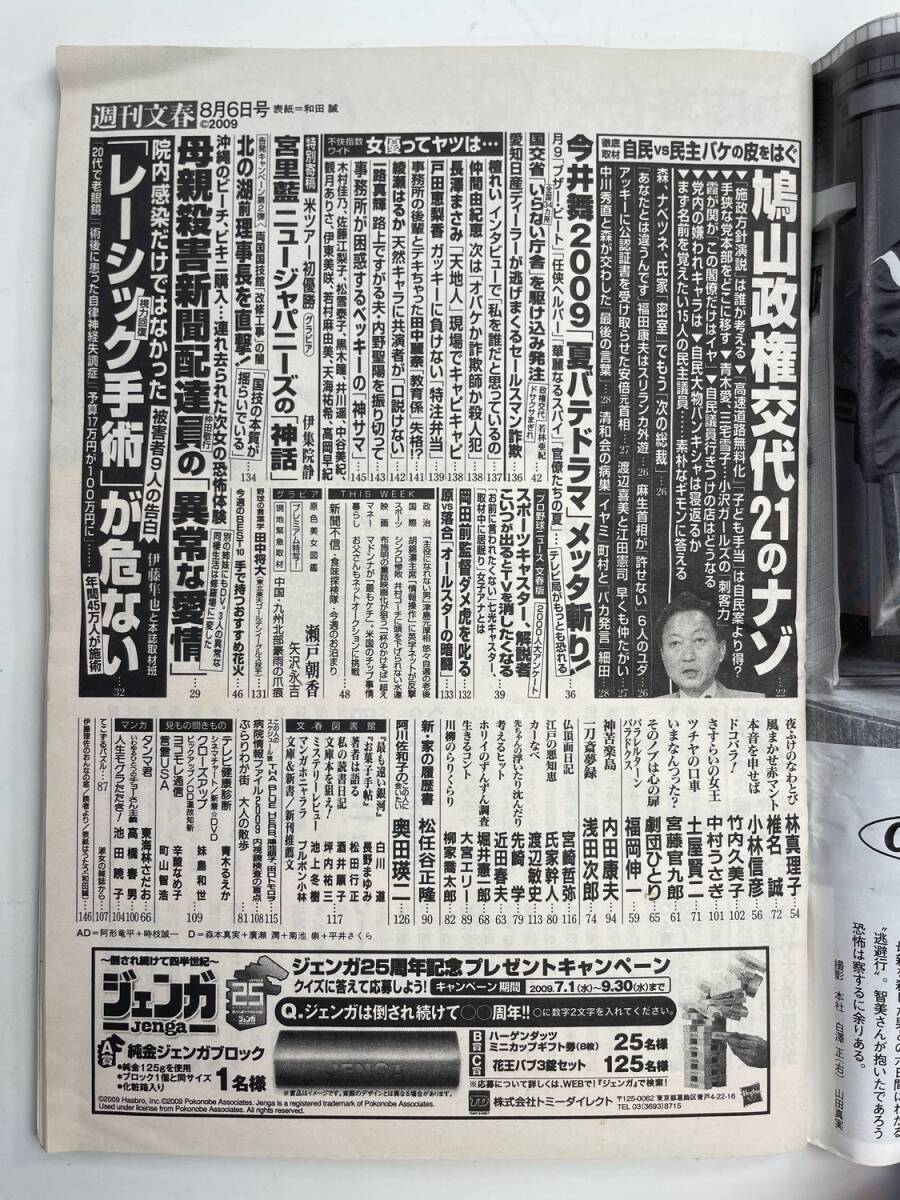 週刊文春
8月6日号 表紙=和田 誠
©2009
徹底取材 自民vs民主バケの皮をはぐ
鳩山政権交代21のナゾ
22
「施政方針演説」は誰が考える▼「高速道路無料化」「子ども手当」は自民案より得?
手狭な党本部をどこに移す▼青木愛、三宅雪子…小沢ガールズの「刺客力」
霞が関が「この閣僚だけはイヤ」▼自民議員行きつけの店はどうなる
党内の嫌われキャラは▼自民大物バンキシャは寝返るか
まず名前を覚えたい15人の民主議員……素朴なギモンに答える
森、ナベツネ、氏家「密室」でもう「次の総裁」 26
「あなたとは違うんです」福田康夫はスリランカ外遊 26
麻生首相が許せない「6人のユダ」 26
アッキーに公認証書を受け取らせた安倍元首相 27
渡辺喜美と江田憲司 早くも仲たがい 27
中川秀直と森が交わした「最後の言葉」 28
清和会の病巣「イヤミ」町村と「バカ発言」細田 28
今井舞2009「夏バテドラマ」メッタ斬り!
36
月9「ブザー・ビート」「任俠ヘルパー」「華麗なるスパイ」「官僚たちの夏」……テレビ局がもっとも恐れる
国交省「いらない庁舎」を駆け込み発注 政権交代 ドサクサまぎれ 若林亜紀 42
愛知日産ディーラーが逃げまくるセールスマン詐欺 139
不快指数ワイド 女優ってヤツは…
檀れい インタビューで「私を誰だと思っているの」 138
仲間由紀恵 次は「オバケか詐欺師か殺人犯」 138
長澤まさみ「天地人」現場でキャピキャピ 139
戸田恵梨香 ガッキーに負けない「特注弁当」 140
事務所の後輩とデキちゃった田中麗奈「教育係」失格!? 141
綾瀬はるか 天然キャラに共演者が「口説けない」 142
一路真輝 路上ですがる夫・内野聖陽を振り切って 143
事務所が困惑するベッキーの「神サマ」 145
木村佳乃、佐藤江梨子、松雪泰子、黒木瞳、井川遥、中谷美紀、
観月ありさ、伊東美咲、若村麻由美、天海祐希、高岡早紀
プロ野球ニュース・文春版
2000人大アンケート
スポーツキャスター、解説者
こいつが出るとTVを消したくなる 39
「お前に言われたくない」七光キャスター
「取材中に居眠り」女子アナとは
岡田前監督 ダメ虎を叱る 132
原vs落合「オールスターの暗闘」 133
特別寄稿 米ツアー初優勝 グラビア
宮里藍 ニュージャパニーズの「神話」
伊集院静
告発キャンペーン第2弾〈両国国技館「改修工事」の闇〉
北の湖前理事長を直撃!「国技の本質が揺らいでいる」 134
THIS WEEK
政治 「主役になれない男」津島元厚相 悠々自適の老後
国際 胡錦濤主席「情報操作」に英字ネットが反撃
スポーツ シンクロ惨敗 井村コーチに頭を下げられない水連
映画 布施明の童話映画化が狙う「一杯のかけそば」超え
マネー マドンナが「最もケチ」。米国のチップ事情
暮らし お父さんもネットオークションに挑戦
新聞不信・食味探検隊・今週のお泊まり 48
グラビア
原色美女図鑑 瀬戸朝香
プレミアム特写! 矢沢永吉
現地緊急取材 中国・九州北部豪雨の爪痕
野球の言葉学 田中将大(東北楽天ゴールデンイーグルス投手) 131
今週のBEST10 手で持つおすすめ花火 46
沖縄のビーチ、ビキニ購入…連れ去られた次女の恐怖体験
母親殺害新聞配達員の「異常な愛情」
29
別の姉妹にもDV▼3人の異常な同棲生活は修羅場に変した
院内感染だけではなかった 被害者9人の告白
伊藤隼也と本誌取材班
視力回復「レーシック手術」が危ない
32
年間45万人が施術
「20代で老眼鏡」「術後に患った自律神経失調症」「予算17万円が100万円に」……
夜ふけのなわとび 林真理子 54
風まかせ赤マント 椎名誠 72
本音を申せば 小林信彦 56
ドコバラ! 竹内久美子 102
さすらいの女王 中村うさぎ 101
ツチヤの口車 土屋賢二 71
いまなんつった? 宮藤官九郎 61
そのノブは心の扉 劇団ひとり 65
パラレルターンパラドクス 福岡伸一 59
神苦楽島 内田康夫 94
一刀斎夢録 浅田次郎 74
仏頂面日記 宮崎哲弥 116
江戸の悪知恵 氏家幹人 80
カーなべ 渡辺敏史 113
先ちゃんの浮いたり沈んだり 先崎学 79
考えるヒット 近田春夫 63
ホリイのずんずん調査 堀井憲一郎 68
生きるコント 大宮エリー 89
川柳のらりくらり 柳家喬太郎 82
新・家の履歴書 松任谷正隆 90
阿川佐和子のこの人に会いたい 奥田瑛二 126
文春図書館
『最も遠い銀河』 白川道
『お菓子手帖』 長野まゆみ
著者は語る 松田行正
私の読書日記 酒井順子
文庫本を狙え! 坪内祐三
ミステリーレビュー 池上冬樹
マンガホニャララ ブルボン小林
文庫&新書/新刊推薦文
117
この人のスクープ一発 THE BLUE HERB、博品館、吉田ヒロミ 115
病院情報ファイル2009 内視鏡検査の盲点 108
ぶらりわが街 大人の散歩 81
見もの聞きもの
テレビ健康診断 青木るえか
シネマチャート/新着☆DVD
クローズアップ 妹島和世
ピックアップ/CD温故知新
ヨコモレ通信 辛酸なめ子
言霊USA 町山智浩
109
マンガ
タンマ君 東海林さだお 66
いわゆるひとつのチョーさん主義 高橋春男 100
人生モグラたたき! 池田暁子 104
てこずるパズル・87 淑女の雑誌から 107
伊藤理佐のおんなの窓/読者より/表紙はうたう(和田誠) 146
AD=阿形竜平+時枝誠一 D=森本真実+廣瀬 潤+菊池 崇+平井さくら
〜倒され続けて四半世紀〜
ジェンガ
Jenga
25
ジェンガ25周年記念プレゼントキャンペーン
クイズに答えて応募しよう! キャンペーン期間 2009.7.1(水)〜9.30(水)まで
Q.ジェンガは倒され続けて〇〇周年!! 〇に数字2文字を入れてください。
A賞 純金ジェンガブロック
●純金125gを使用
●ブロック1個と同サイズ
●化粧箱入り
1名様
JENGA
※賞品はイメージです。実際のデザインとは異なります。
B賞 ハーゲンダッツ ミニカップギフト券(8枚) 25名様
C賞 花王バブ3錠セット 125名様
※応募について詳しくは、WEBで!『ジェンガ』で検索!
©2009 Hasbro, Inc. ©2009 Pokonobe Associates. Jenga is a registered trademark of Pokonobe Associates.
Used under license from Pokonobe Associates. All rights reserved.
TD 株式会社トミーダイレクト 〒125-0062 東京都葛飾区青戸4-22-16
TEL 03(3693)8715
Hasbro
“逃避行”。智美さんが抱いたであろう
恐怖は察するに余りある。
撮影 本社 白澤 正(右) 山田真実